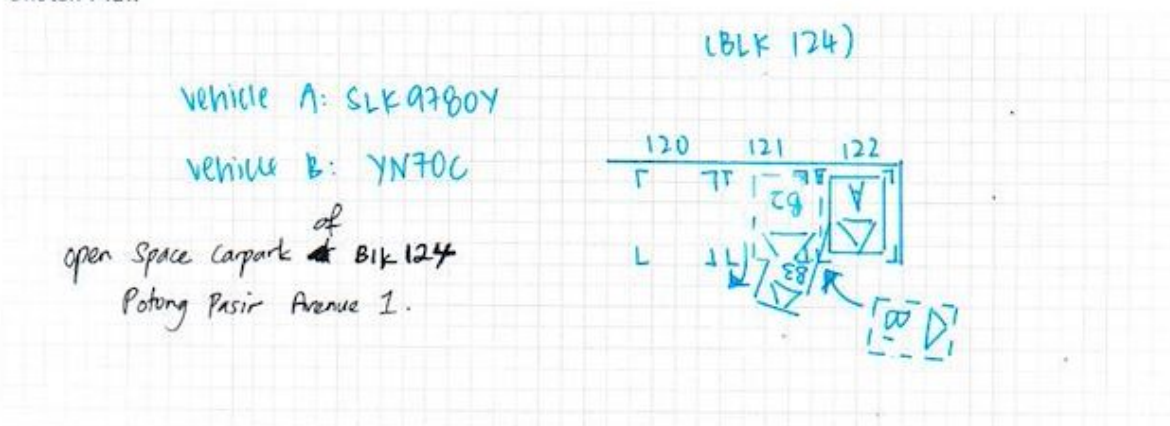 (BLK 124)
vehicle A: SLK9780Y
vehicle B: YN70C
open Space Carpark of Blk 124
Potong Pasir Avenue 1.
120 121 122
B2 A
B3
B